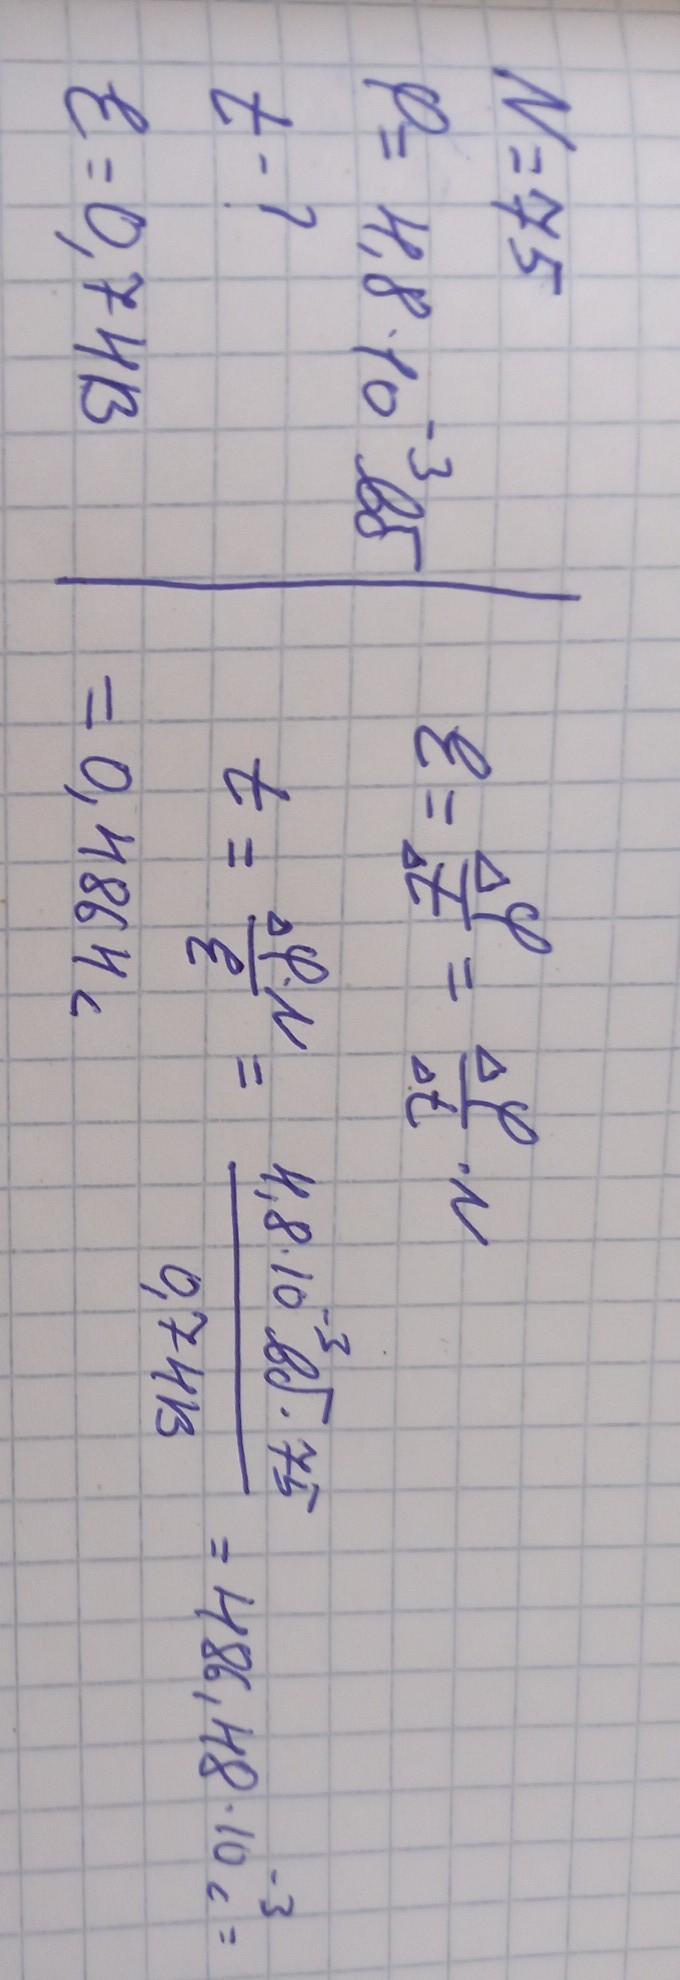 N = 75
φ = 4,8 · 10⁻³ Вб
t - ?
ℰ = 0,74В
ℰ = Δφ/Δt = Δφ/Δt · N
t = Δφ·N/ℰ = 4,8·10⁻³ Вб · 75/0,74В = 486,48 · 10⁻³ с =
= 0,4864 с